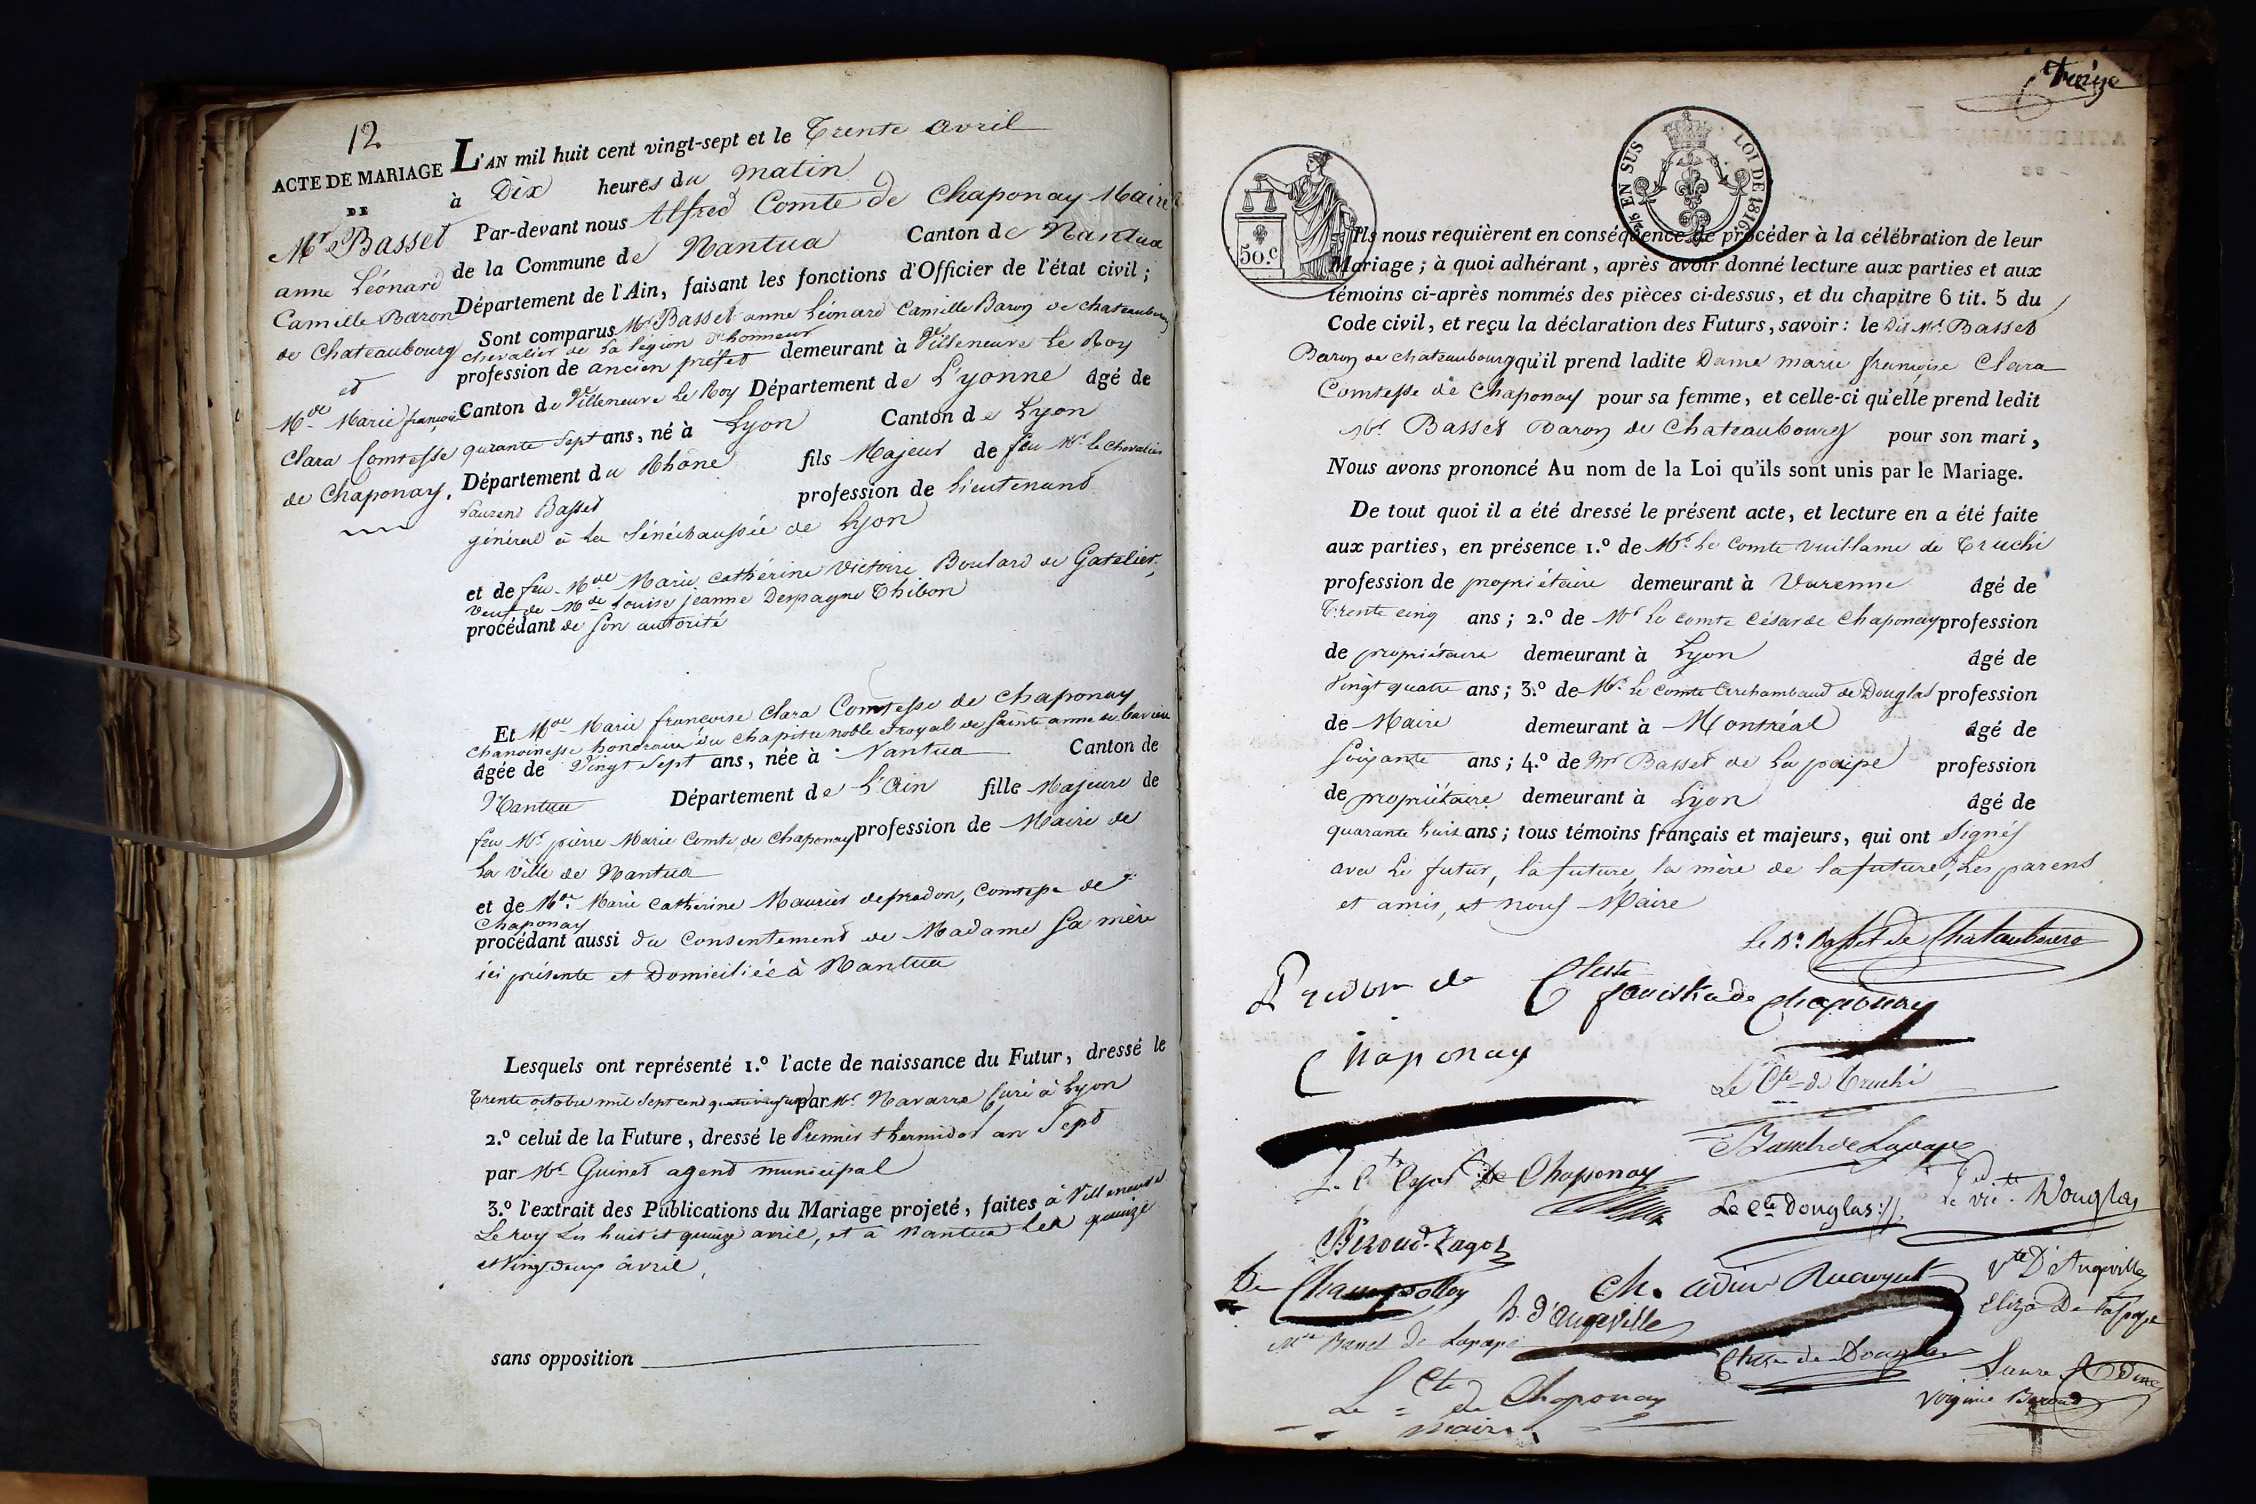 12
ACTE DE MARIAGE
DE
Mr. Basset
anne Léonard
Camille Baron
de Chateaubourg
et
Mde Marie françoise
Clara Comtesse
de Chaponay.
L'AN mil huit cent vingt-sept et le Trente avril
à Dix heures du matin
Par-devant nous Alfred Comte de Chaponay Maire
de la Commune de Nantua Canton de Nantua
Département de l'Ain, faisant les fonctions d'Officier de l'état civil ;
Sont comparus Mr. Basset anne Léonard Camille Baron de chateaubourg
chevalier de la légion d'honneur
profession de ancien préfet demeurant à Villeneuve Le Roy
Canton de Villeneuve Le Roy Département de L'yonne âgé de
quarante sept ans, né à Lyon Canton de Lyon
Département du Rhône fils Majeur de feu Mr. le chevalier
Laurent Basset profession de Lieutenant
général à la Sénéchaussée de Lyon
et de feu Mde Marie Cathérine Victoire Boulard de Gatelier,
veuf de Mde Louise jeanne Despagne Thibon
procédant de son autorité
Et Mde Marie françoise Clara Comtesse de chaponay
chanoinesse honoraire du chapitre noble et royal de Sainte anne de bavière
âgée de Vingt Sept ans, née à Nantua Canton de
Nantua Département de L'Ain fille Majeure de
feu Mr. pierre Marie Comte de Chaponay profession de Maire de
La ville de Nantua
et de Mde. Marie Catherine Maurier de pradon, Comtesse de
Chaponay
procédant aussi du Consentement de Madame Sa mère
ici présente et Domiciliée à Nantua
Lesquels ont représenté 1.º l'acte de naissance du Futur, dressé le
Trente octobre mil sept cent par Mr. Navarre Curé à Lyon
2.º celui de la Future, dressé le Premier thermidor an Sept
par Mr. Guinet agent municipal
3.º l'extrait des Publications du Mariage projeté, faites à Villeneuve
Le roy Les huit et quinze avril, et à Nantua les quinze
et Vingt deux avril,
sans opposition
Treize
50.c
EN SUS LOI DE 1816
Ils nous requièrent en conséquence de procéder à la célébration de leur
Mariage ; à quoi adhérant, après avoir donné lecture aux parties et aux
témoins ci-après nommés des pièces ci-dessus, et du chapitre 6 tit. 5 du
Code civil, et reçu la déclaration des Futurs, savoir : le dit Mr. Basset
Baron de chateaubourg qu'il prend ladite Dame marie françoise Clara
Comtesse de Chaponay pour sa femme, et celle-ci qu'elle prend ledit
Mr Basset Baron de Chateaubourg pour son mari,
Nous avons prononcé Au nom de la Loi qu'ils sont unis par le Mariage.
De tout quoi il a été dressé le présent acte, et lecture en a été faite
aux parties, en présence 1.º de Mr. Le Comte Vuillame de Truchi
profession de propriétaire demeurant à Varenne âgé de
Trente cinq ans ; 2.º de Mr Le Comte César de Chaponay profession
de propriétaire demeurant à Lyon âgé de
Vingt quatre ans ; 3.º de Mr. Le Comte Archambaud de Douglas profession
de Maire demeurant à Montréal âgé de
Soixante ans ; 4.º de Mr Basset de La pape profession
de propriétaire demeurant à Lyon âgé de
quarante huit ans ; tous témoins français et majeurs, qui ont Signés
avec Le futur, la future, la mère de la future, Les parens
et amis, et nous Maire
le Bn. Basset de Chateaubourg
Pradon de
Chaponay
de Chaponay
Le Cte de Truchi
Basset de Lapape
Le Cte César de Chaponay
Le Cte Douglas
Le Vte Douglas
Béroud-Zagot
De Champollon
Ch. adrien
Vte D'Angeville
Eliza De Lapape
h. d'angeville
Mie Basset de Lapape
Ctesse de Douglas
Laure
Virginie Béroud
Le Cte de Chaponay
maire